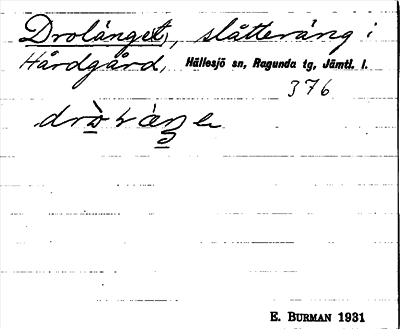 Drolänget, slåtteräng i
Hårdgård, Hällesjö sn, Ragunda tg, Jämtl. l.
376
E. BURMAN 1931